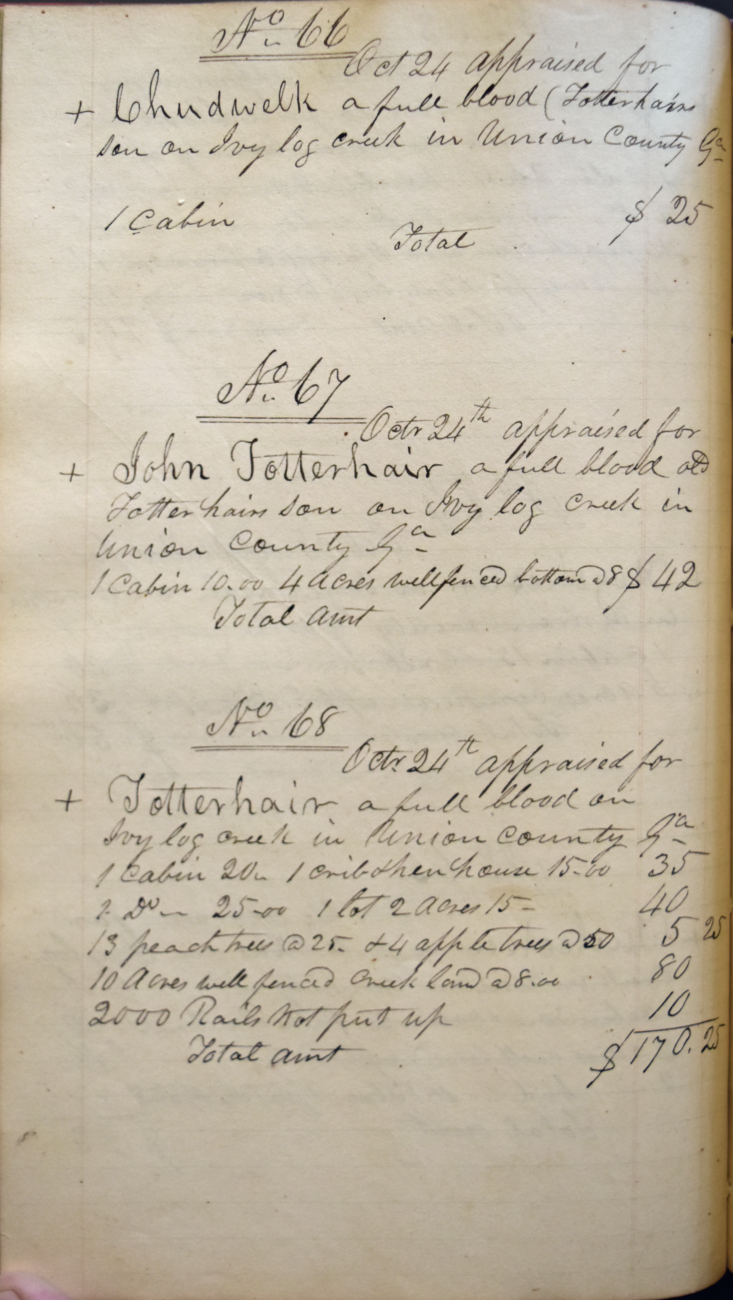 No. 66
Oct 24 appraised for
+ Chudwelk a full blood (Totterhairs
son on Ivy log creek in Union County Ga
1 Cabin $ 25
Total
No. 67
Octr 24th appraised for
+ John Totterhair a full blood old
Totterhairs son on Ivy log creek in
Union County Ga
1 Cabin 10.00 4 Acres well fenced bottom @ 8 $ 42
Total amt
No. 68
Octr 24th appraised for
+ Totterhair a full blood on
Ivy log creek in Union County Ga
1 Cabin 20- 1 crib & hen house 15-00 35
1 Do - 25-00 1 lot 2 Acres 15- 40
13 peach trees @ 25- & 4 apple trees @ 50 5 25
10 Acres well fenced creek land @ 8.00 80
2000 Rails not put up 10
Total amt $ 170.25